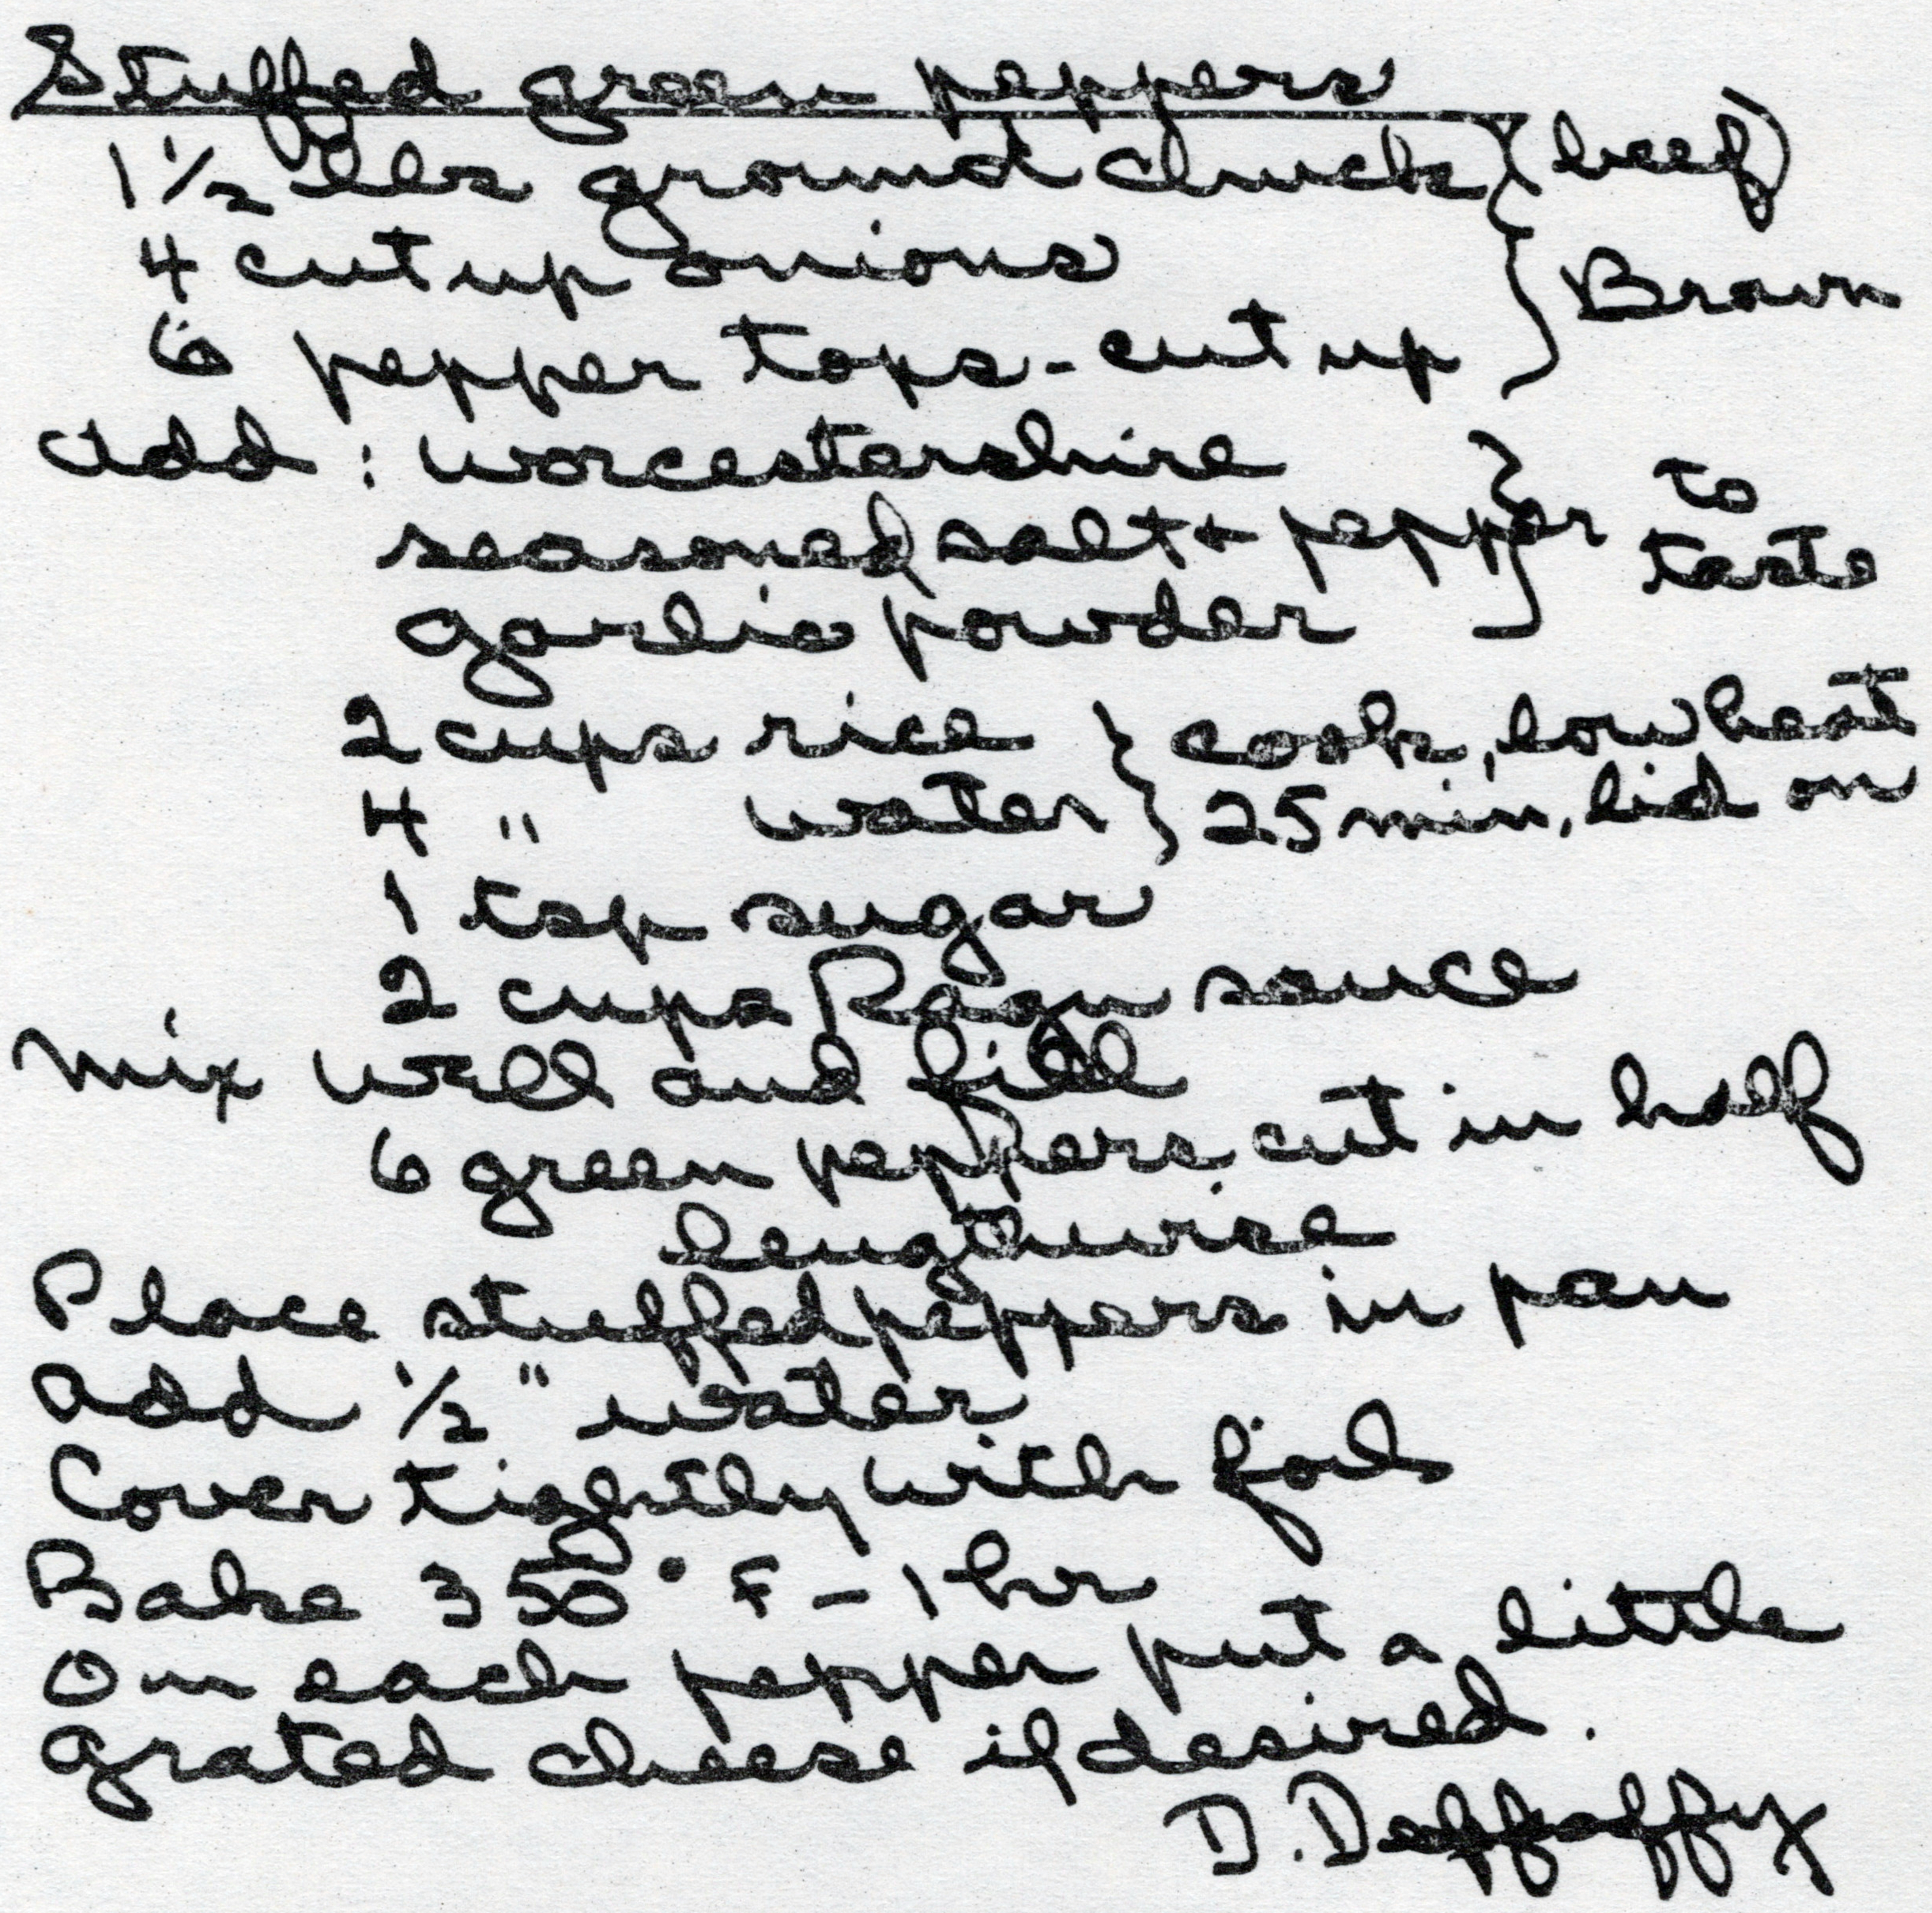 Stuffed green peppers
1 1/2 lbs ground chuck (beef)
4 cut up onions } Brown
6 pepper tops - cut up
add : worcestershire
seasoned salt + pepper } to taste
garlic powder
2 cups rice } cook, low heat
4 " water } 25 min, lid on
1 tsp sugar
2 cups Ragu sauce
mix well and fill
6 green peppers cut in half
lengthwise
Place stuffed peppers in pan
add 1/2" water
Cover tightly with foil
Bake 350° F - 1 hr
On each pepper put a little
grated cheese if desired.
D.